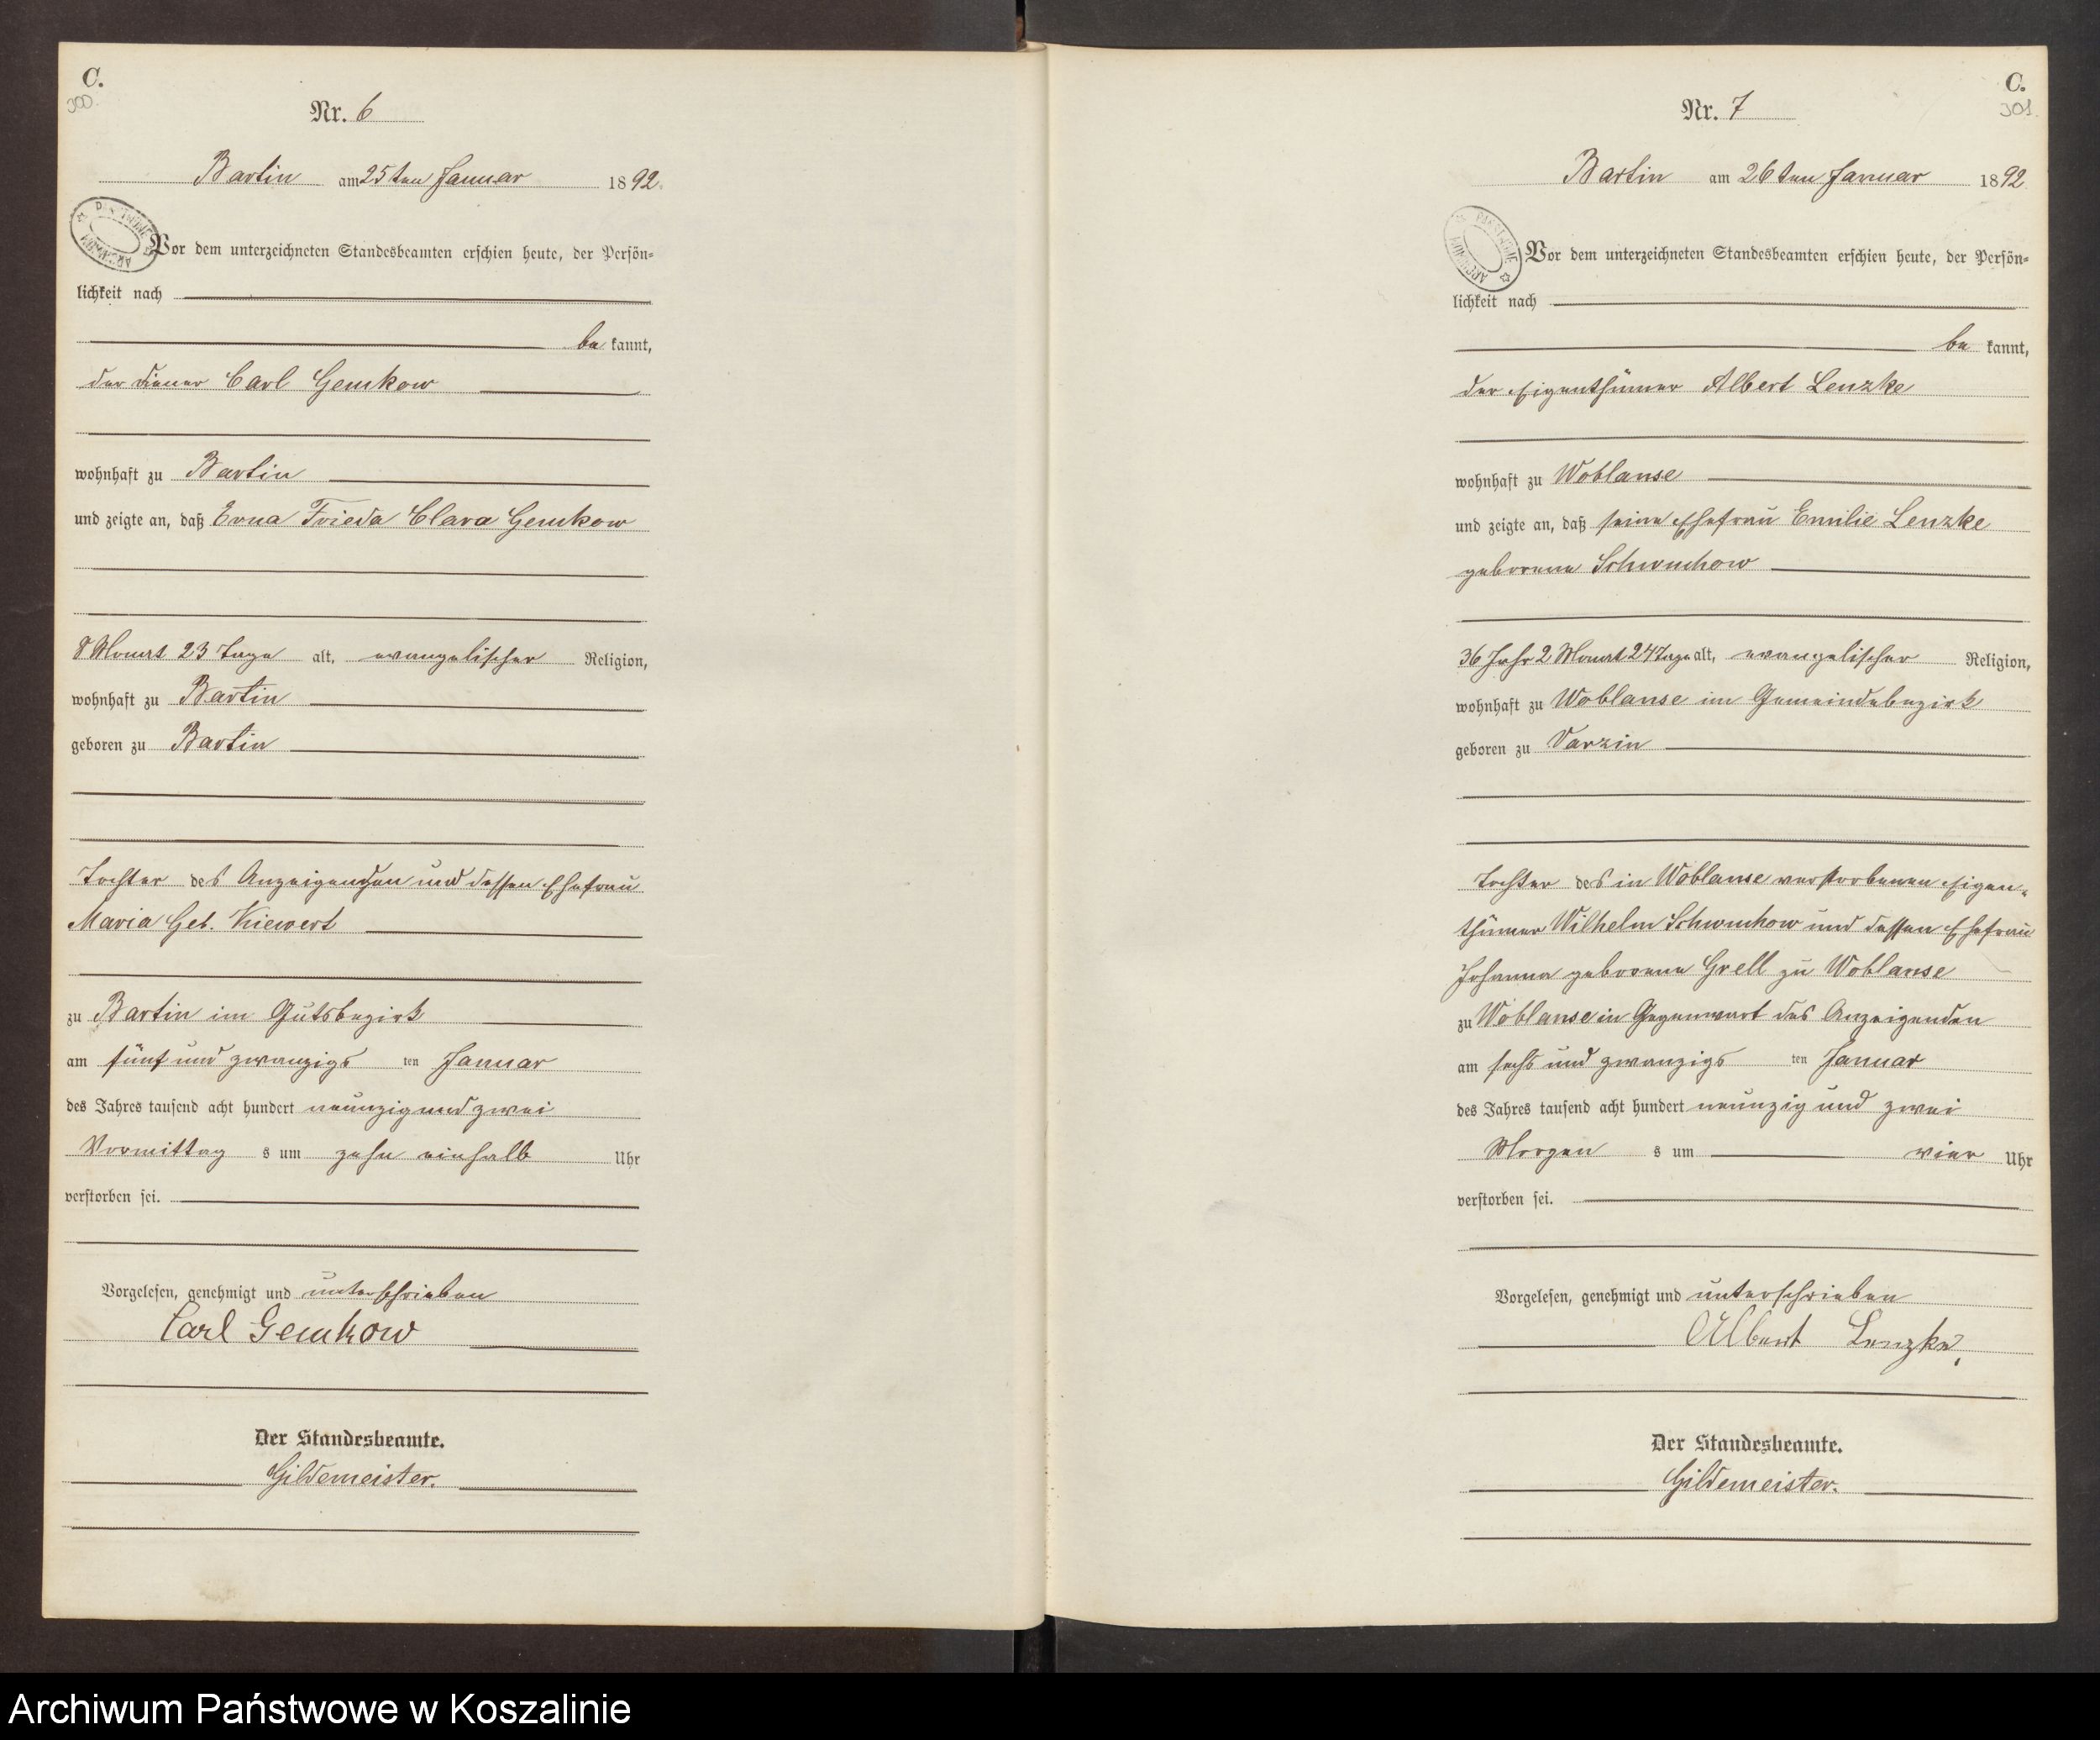 C.
300.
Nr. 6
Bartin am 25ten Januar 1892.
Vor dem unterzeichneten Standesbeamten erschien heute, der Persön-
lichkeit nach
be kannt,
der Diener Carl Gemkow
wohnhaft zu Bartin
und zeigte an, daß Erna Frieda Clara Gemkow
8 Monat 23 Tage alt, evangelischer Religion,
wohnhaft zu Bartin
geboren zu Bartin
Tochter des Anzeigenden und dessen Ehefrau
Maria Geb. Kiewert
zu Bartin im Gutsbezirk
am fünf und zwanzigs ten Januar
des Jahres tausend acht hundert neunzig und zwei
Vormittag s um zehn einhalb Uhr
verstorben sei.
Vorgelesen, genehmigt und unterschrieben
Carl Gemkow
Der Standesbeamte.
Gildemeister.
C.
301.
Nr. 7
Bartin am 26ten Januar 1892
Vor dem unterzeichneten Standesbeamten erschien heute, der Persön-
lichkeit nach
be kannt,
der Eigenthümer Albert Lenzke
wohnhaft zu Woblanse
und zeigte an, daß seine Ehefrau Emilie Lenzke
geborene Schwuchow
36 Jahr 2 Monat 24 Tage alt, evangelischer Religion,
wohnhaft zu Woblanse im Gemeindebezirk
geboren zu Varzin
Tochter des in Woblanse verstorbenen Eigen-
thümer Wilhelm Schwuchow und dessen Ehefrau
Johanna geborene Grell zu Woblanse
zu Woblanse in Gegenwart des Anzeigenden
am sechs und zwanzigs ten Januar
des Jahres tausend acht hundert neunzig und zwei
Morgen s um vier Uhr
verstorben sei.
Vorgelesen, genehmigt und unterschrieben
Albert Lenzke,
Der Standesbeamte.
Gildemeister.
Archiwum Państwowe w Koszalinie